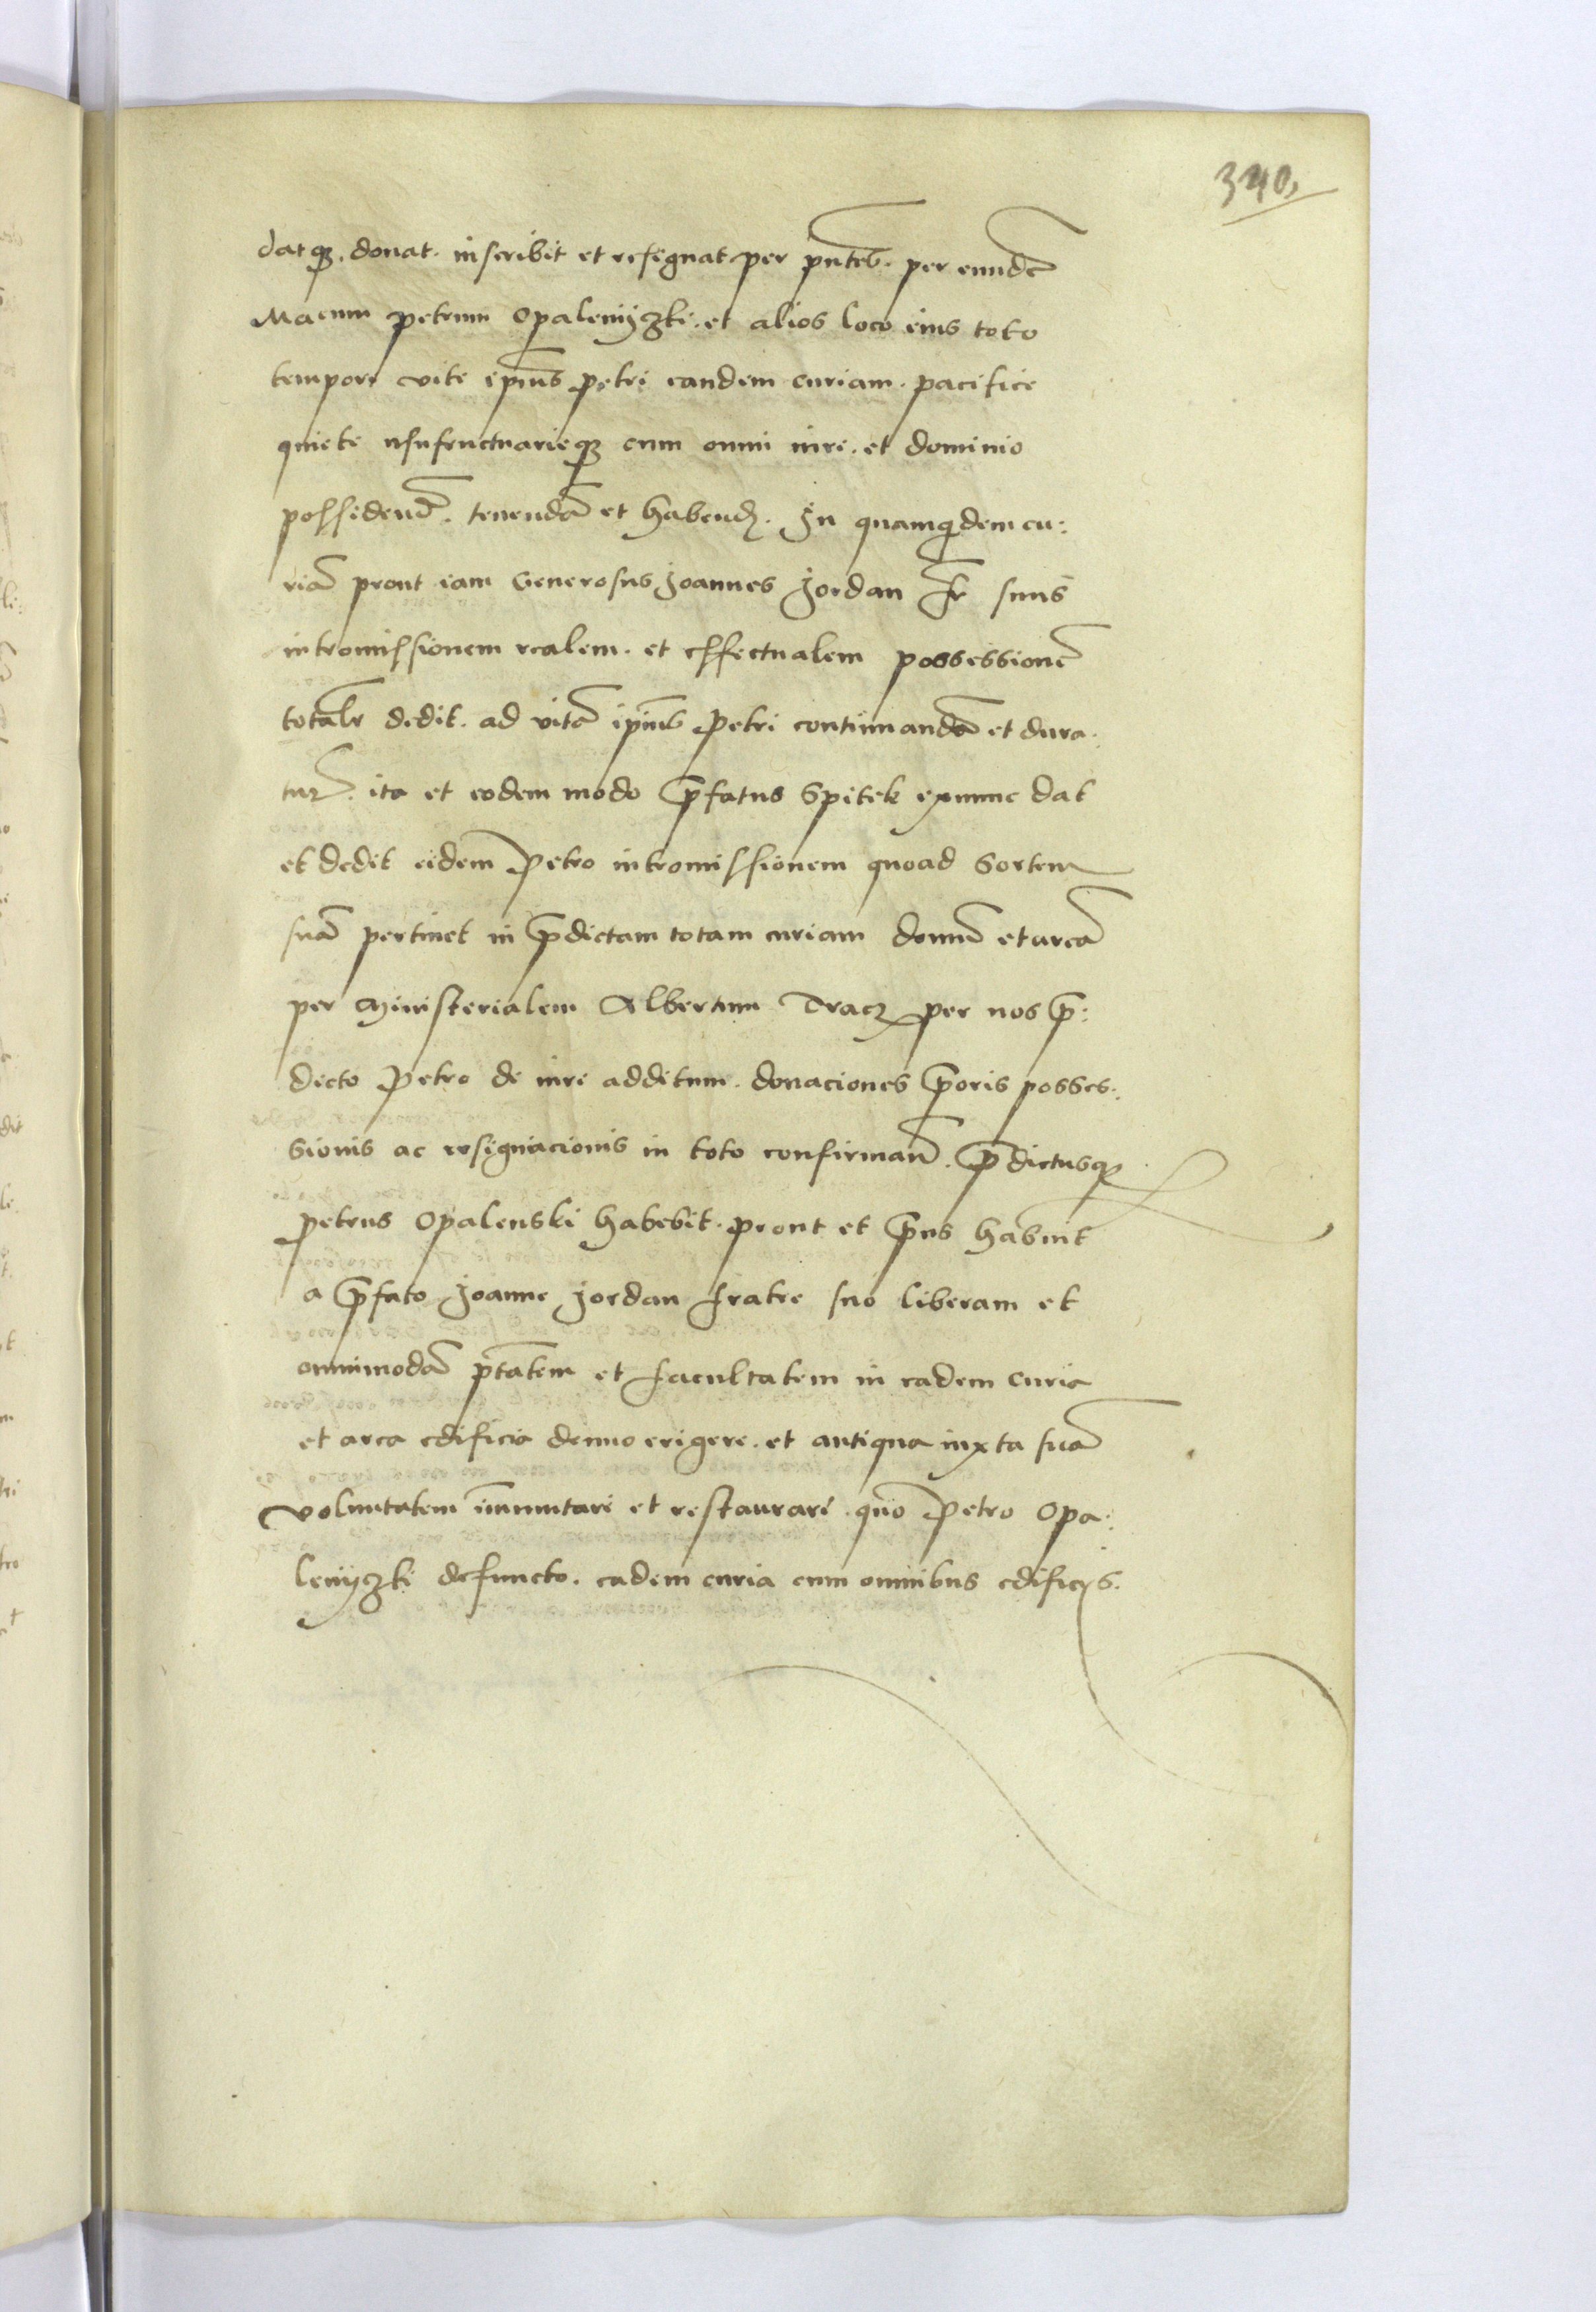 340,
datqȝ. donat. inscribit et resignat per pn̄tes. per eundē
Macum petrum Opalenyczki. et alios loco eius toto
tempore vite ip̄ius petri eandem curiam. pacifice
quiete usufructuarieqȝ cum omni iure. et dominio
possidend̄. tenendā et habend. In quamqdem cu:
riā prout iam Generosus Joannes Jordan Fr̄ suus
intromissionem realem. et effectualem possessionē
totalr̄ dedit. ad vitā ip̄ius Petri continuandā et dura:
tur̄. ita et eodem modo p̄fatus Spitek exnunc dat
et dedit eidem Petro intromissionem quoad Sortem
suā pertinet in p̄dictam totam curiam domū et areā
per Ministerialem Albertum Dracz per nos p̄:
dicto Petro de iure additum. donaciones p̄oris posses:
sionis ac resignacionis in toto confirman̄. p̄dictusqȝ
Petrus Opalenski habebit. prout et p̄us habuit
a p̄fato Joanne Jordan fratre suo liberam et
omnimodā pt̄atem et facultatem in eadem curia
et area edificia denuo erigere. et antiqua iuxta suā
voluntatem im̄mutare et restaurare. quo Petro Opa:
lenyczki defuncto. eadem curia cum omnibus edificys.